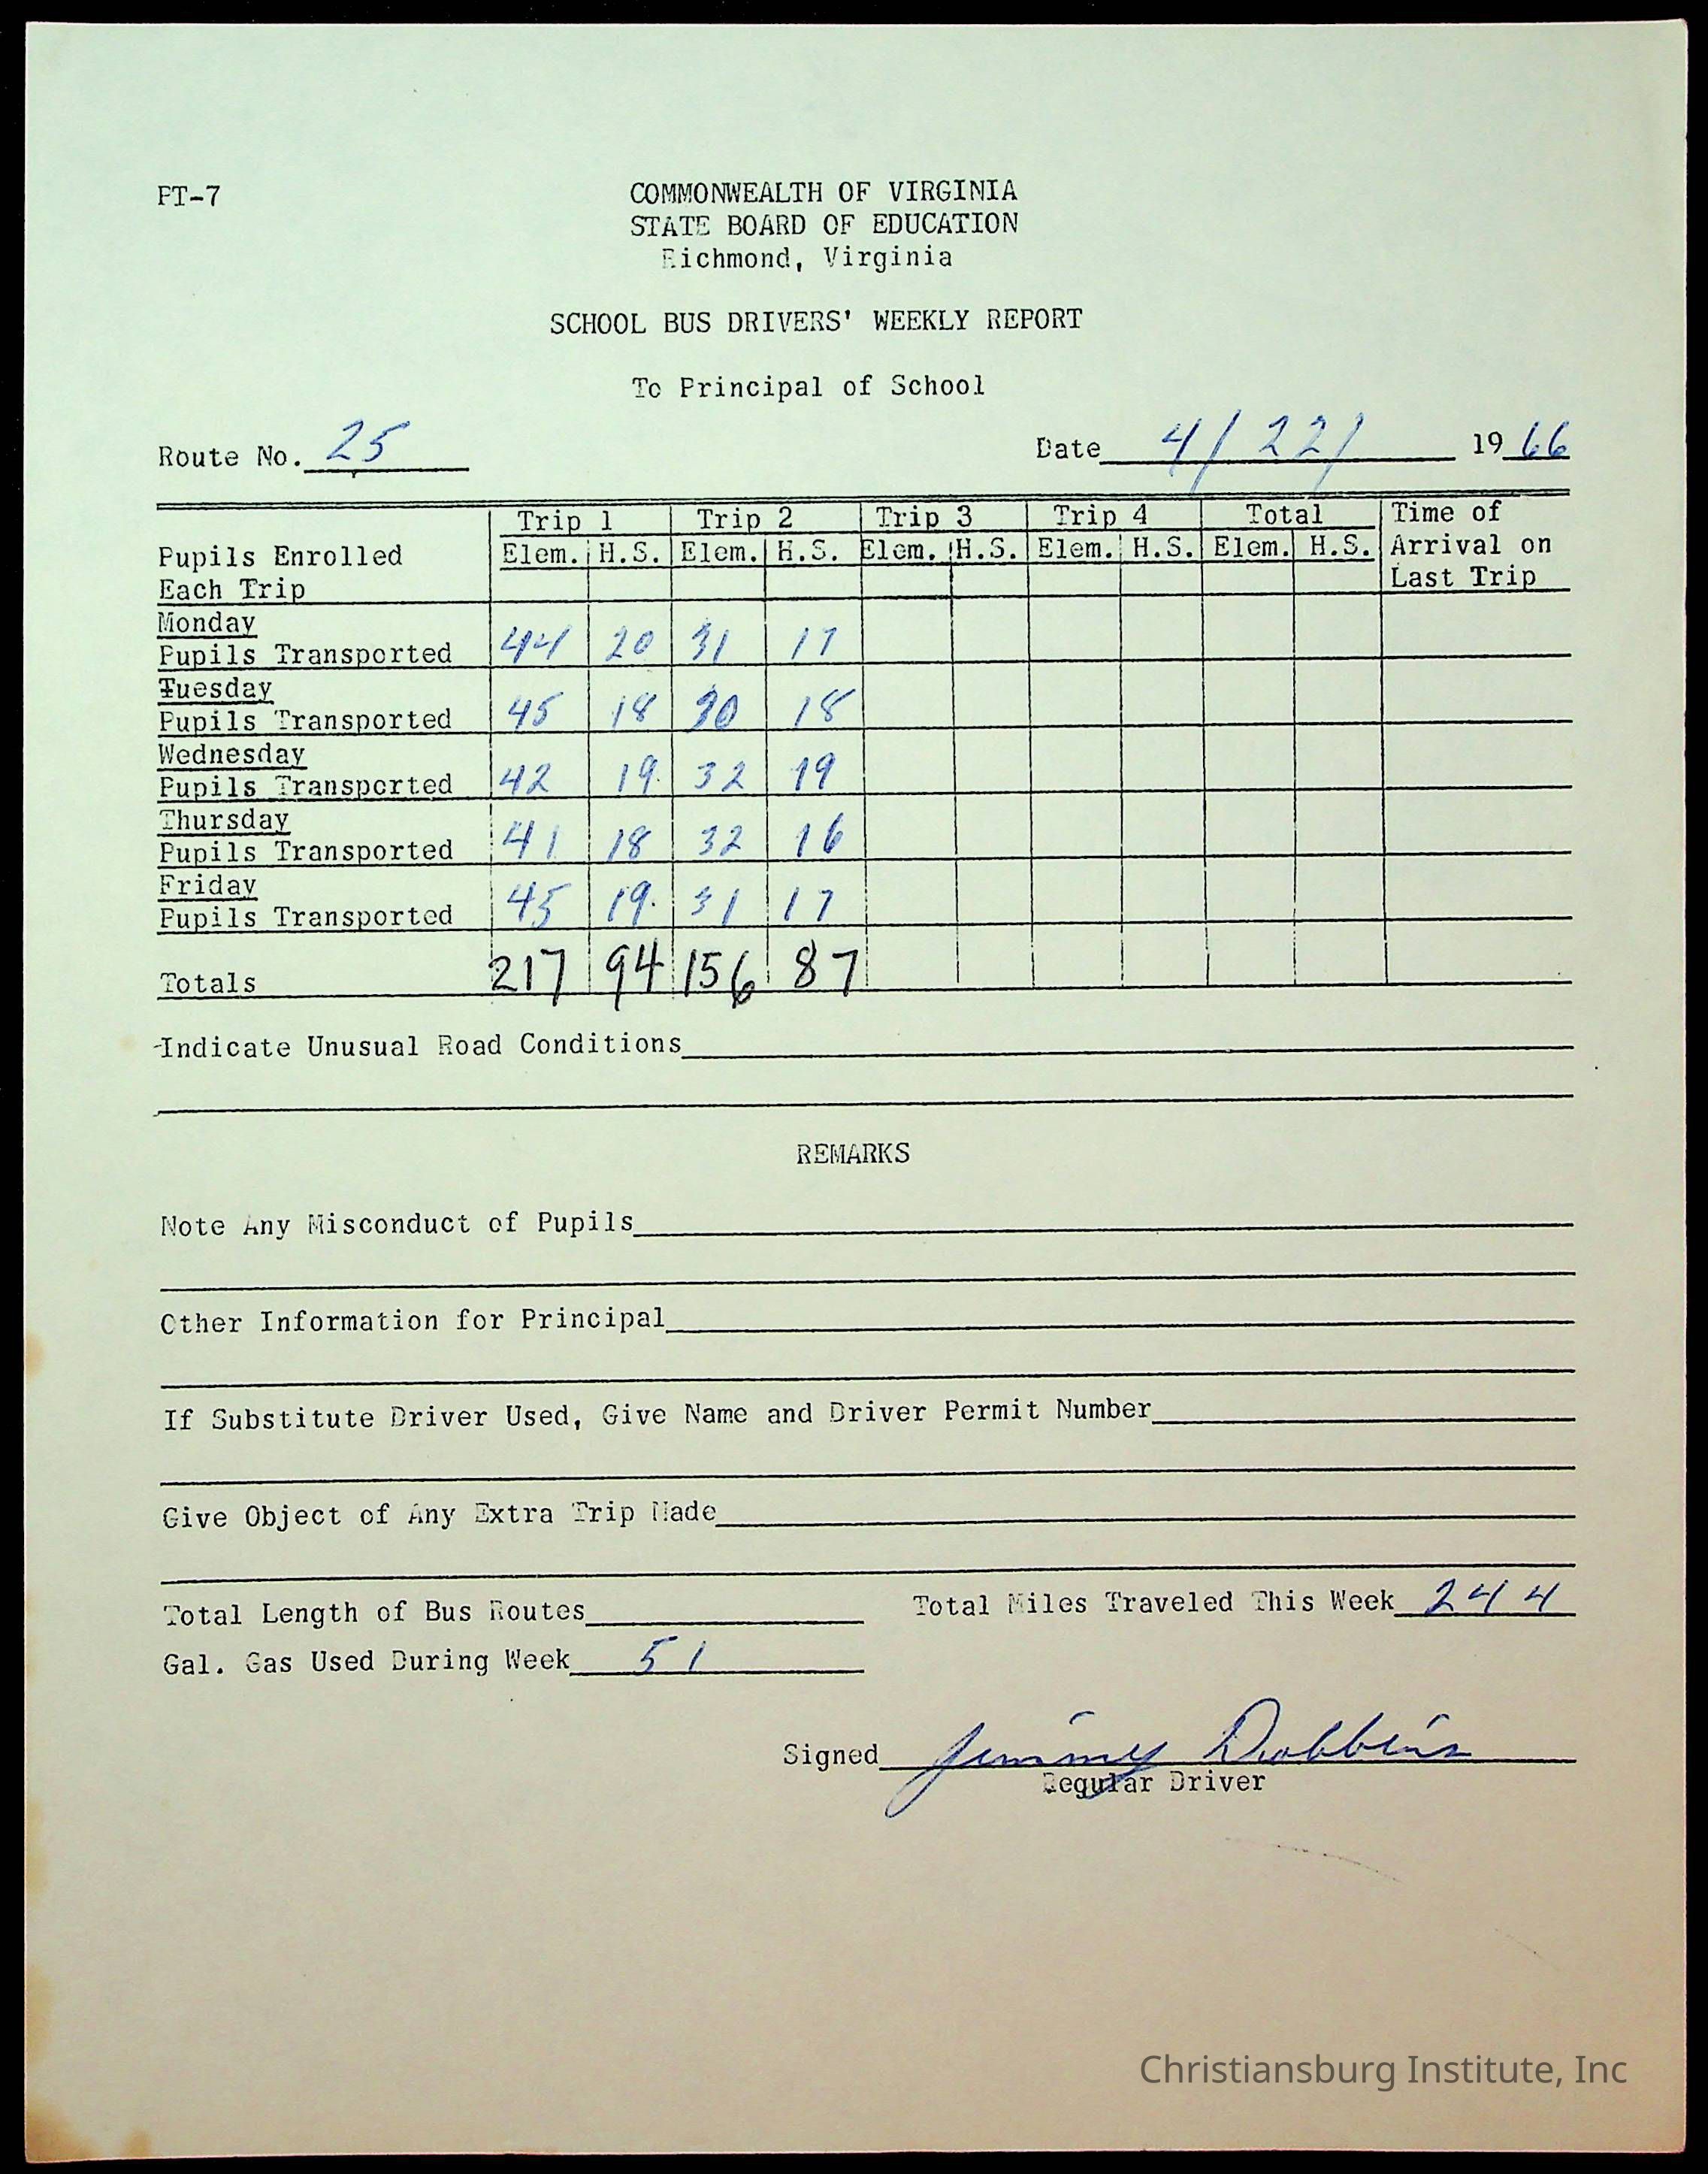 PT-7
COMMONWEALTH OF VIRGINIA
STATE BOARD OF EDUCATION
Richmond, Virginia
SCHOOL BUS DRIVERS' WEEKLY REPORT
To Principal of School
Route No. 25 Date 4/22/ 1966
Trip 1 Trip 2 Trip 3 Trip 4 Total Time of
Pupils Enrolled Elem. H.S. Elem. H.S. Elem. H.S. Elem. H.S. Elem. H.S. Arrival on
Each Trip Last Trip
Monday
Pupils Transported 44 20 31 17
Tuesday
Pupils Transported 45 18 30 18
Wednesday
Pupils Transported 42 19 32 19
Thursday
Pupils Transported 41 18 32 16
Friday
Pupils Transported 45 19 31 17
Totals 217 94 156 87
Indicate Unusual Road Conditions
REMARKS
Note Any Misconduct of Pupils
Other Information for Principal
If Substitute Driver Used, Give Name and Driver Permit Number
Give Object of Any Extra Trip Made
Total Length of Bus Routes Total Miles Traveled This Week 244
Gal. Gas Used During Week 51
Signed Jimmy Dobbins
Regular Driver
Christiansburg Institute, Inc